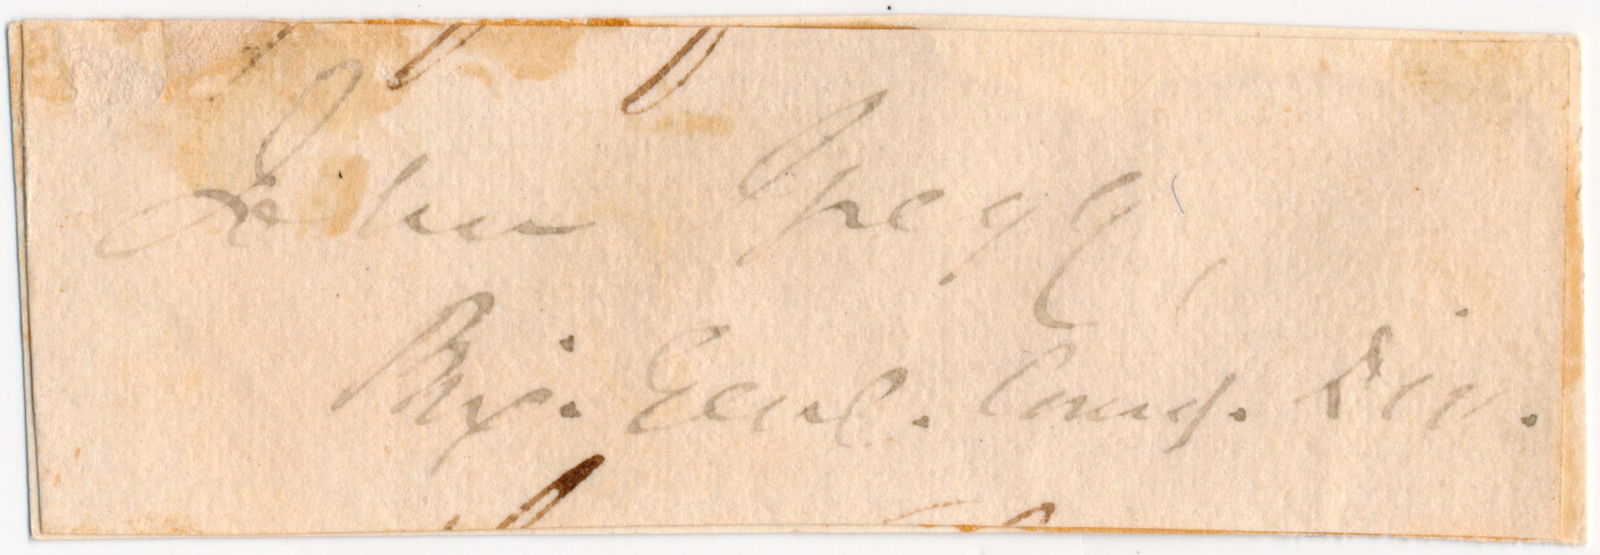 John Gregg,
Brig. Genl. Comg. Div.